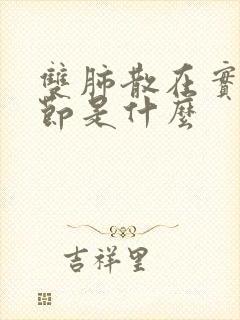 雙肺散在實
節是什麼
吉祥里